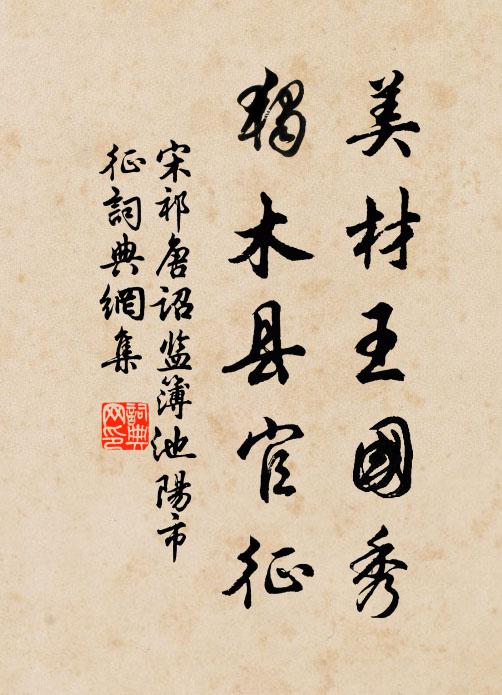 美材王國秀
獨木县官征
宋祁唐詔监簿池陽市
征詞典網集
詞典
网印